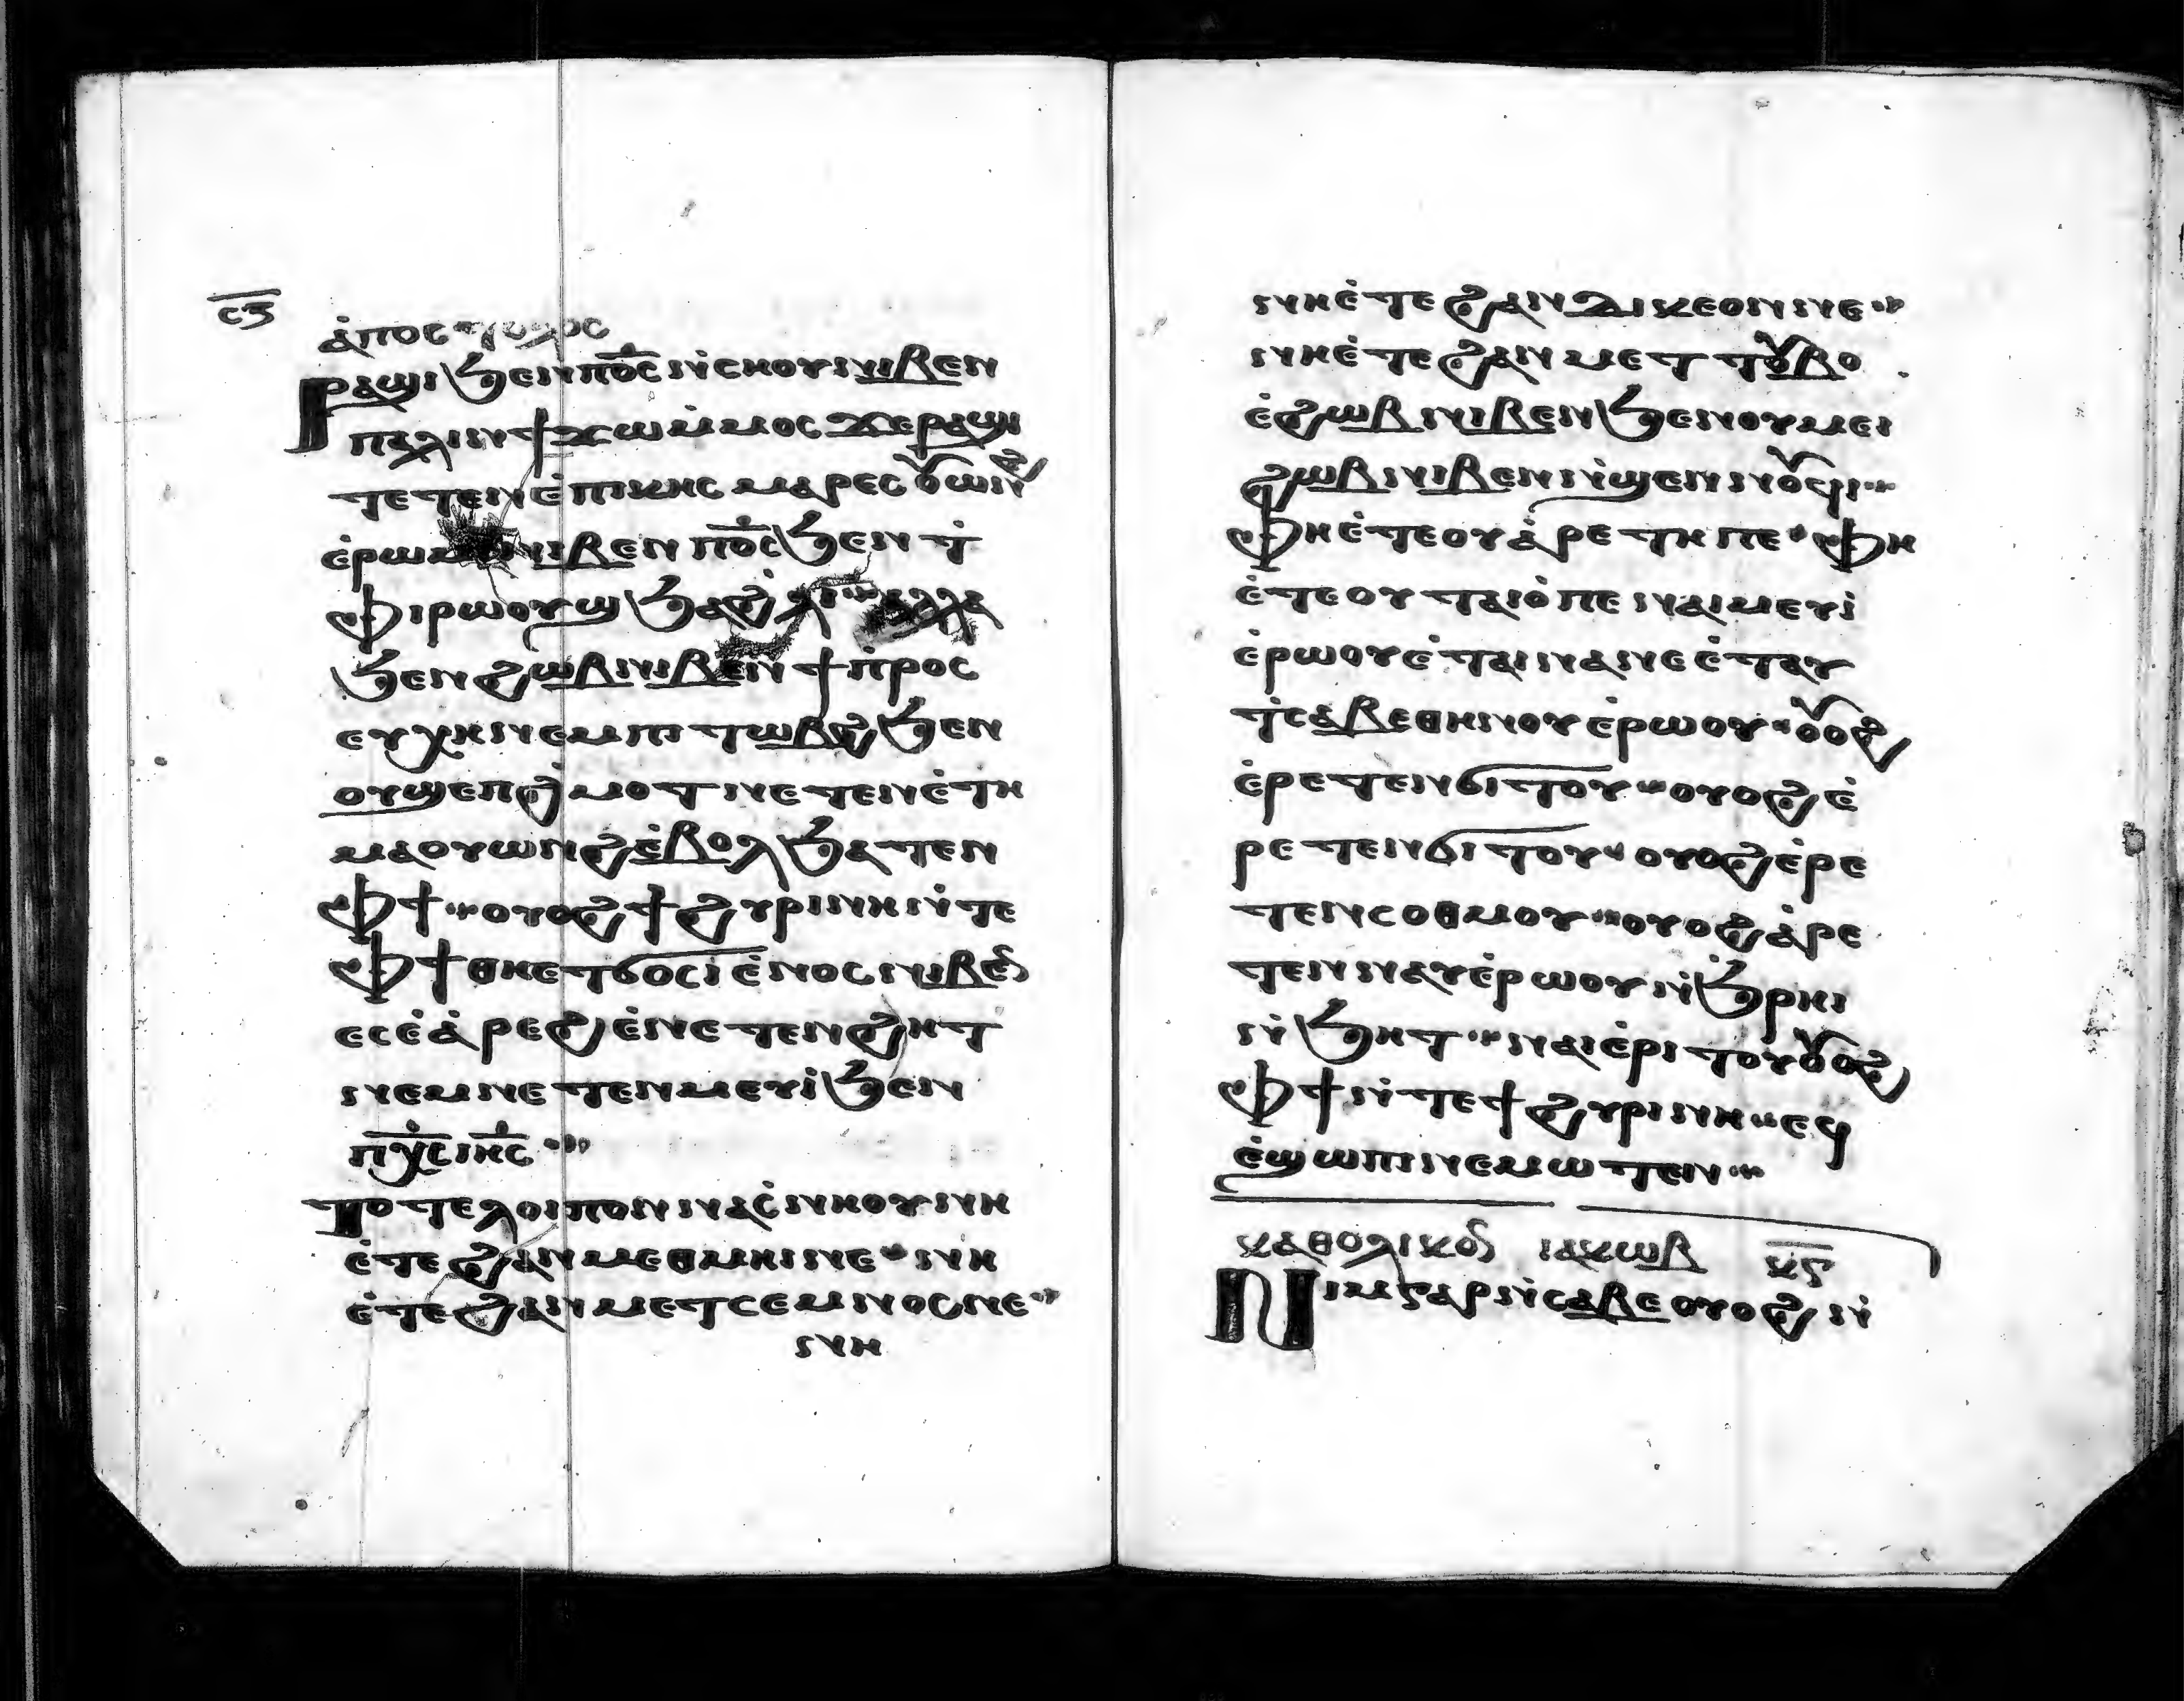 ⲥ︦ⲍ︦
ⲁ̇ⲡⲟⲥⲧⲟⲗⲟⲥ
Ⲣⲁϣⲓ ϧⲉⲛ ⲡⲟ̅ⲥ̅ ⲛ̇ⲥⲏⲟⲩ ⲛⲓⲃⲉⲛ
ⲡⲁⲗⲓⲛ ϯϫⲱ ⲙ̇ⲙⲟⲥ ϫⲉ ⲣⲁϣⲓ
ⲧⲉⲧⲉⲛⲉ̇ⲡⲓⲕⲏⲥ ⲙⲁⲣⲉⲥⲟⲩⲱⲛϩ
ⲉ̇ⲣⲱⲙⲓ ⲛⲓⲃⲉⲛ ⲡⲟ̅ⲥ̅ ϧⲉⲛⲧ̇
ⲫⲓⲣⲱⲟⲩϣ ϧⲁϩ̇ⲗⲓ ⲁⲗⲗⲁ
ϧⲉⲛ ϩⲱⲃ ⲛⲓⲃⲉⲛ ϯⲡ̇ⲣⲟⲥ
ⲉⲩⲭⲏ ⲛⲉⲙ ⲡⲓⲧⲱⲃϩ ϧⲉⲛ
ⲟⲩϣⲉⲡϩ̇ⲙⲟⲧ ⲛⲉⲧⲉⲛⲉ̇ⲧⲏ
ⲙⲁⲟⲩⲱⲛϩ ⲉ̇ⲃⲟⲗ ϧⲁⲧⲉⲛ
ⲫϯ ⲟⲩⲟϩ ϯϩⲩⲣⲓⲛⲏ ⲛ̇ⲧⲉ
ⲫϯ ⲑⲏⲉⲧϭⲟⲥⲓ ⲉ̇ⲛⲟⲥ ⲛⲓⲃⲉⲛ
ⲉⲥⲉ̇ⲁ̇ⲣⲉϩ ⲉ̇ⲛⲉⲧⲉⲛϩⲏⲧ
ⲛⲉⲙ ⲛⲉⲧⲉⲛⲙⲉⲩⲓ̇ ϧⲉⲛ
ⲡⲭ̅ⲥ̅ ⲓⲏ̅ⲥ̅
Ⲧⲟⲧⲉ ⲗⲟⲓⲡⲟⲛ ⲛⲁⲥ̇ⲛⲏⲟⲩ ⲛⲏ
ⲉ̇ⲧⲉ ϩⲁⲛⲙⲉⲑⲙⲏⲓ ⲛⲉ ⲛⲏ
ⲉ̇ⲧⲉ ϩⲁⲛⲙⲉⲧⲥⲉⲙⲛⲟⲥ ⲛⲉ
ⲛⲏ
ⲛⲏⲉ̇ⲧⲉ ϩⲁⲛⲇⲓⲕⲉⲟⲛ ⲛⲉ
ⲛⲏⲉ̇ⲧⲉ ϩⲁⲛⲙⲉⲧⲧⲟⲩⲃⲟ
ⲉ̇ϩⲱⲃ ⲛⲓⲃⲉⲛ ϧⲉⲛ ⲟⲩⲙⲉⲓ
ϩⲱⲃ ⲛⲓⲃⲉⲛ ⲛ̇ϣⲉⲛⲛⲟⲩϥⲓ
ⲫⲏⲉ̇ⲧⲉ ⲟⲩⲁ̇ⲣⲉⲧⲏ ⲡⲉ ⲫⲏ
ⲉ̇ⲧⲉ ⲟⲩⲧⲁⲓⲟ̇ ⲡⲉ ⲛⲁⲓ ⲙⲉⲩⲓ̇
ⲉ̇ⲣⲱⲟⲩ ⲉ̇ⲧⲁⲓ ⲛⲁⲛⲉ ⲉ̇ⲧⲁⲩ
ⲧ̇ⲥⲁⲃⲉ ⲑⲏⲛⲟⲩ ⲉ̇ⲣⲱⲟⲩ ⲟⲩⲟϩ
ⲉ̇ⲣⲉⲧⲉⲛϭⲓⲧⲟⲩ ⲟⲩⲟϩ ⲉ̇
ⲣⲉⲧⲉⲛϭⲓⲧⲟⲩ ⲟⲩⲟϩ ⲉ̇ⲣⲉ
ⲧⲉⲛⲥⲟⲑⲙⲟⲩ ⲟⲩⲟϩ ⲁ̇ⲣⲉ
ⲧⲉⲛⲛⲁⲩ ⲉ̇ⲣⲱⲟⲩ ⲛ̇ϧ̇ⲣⲏⲓ
ⲛ̇ϧⲏⲧ ⲛⲁⲓ ⲉ̇ⲣⲓⲧⲟⲩ ⲟⲩⲟϩ
ⲫϯ ⲛ̇ⲧⲉ ϯϩⲩⲣⲓⲛⲏ ⲉϥ
ⲉ̇ϣⲱⲡⲓ ⲛⲉⲙⲱⲧⲉⲛ
ⲕⲁⲑⲟⲗⲓⲕⲟⲛ ⲓⲁⲕⲱⲃ ⲕ̅ⲋ̅
Ⲛⲓⲙ ⲅⲁⲣ ⲛ̇ⲥⲁⲃⲉ ⲟⲩⲟϩ ⲛ̇